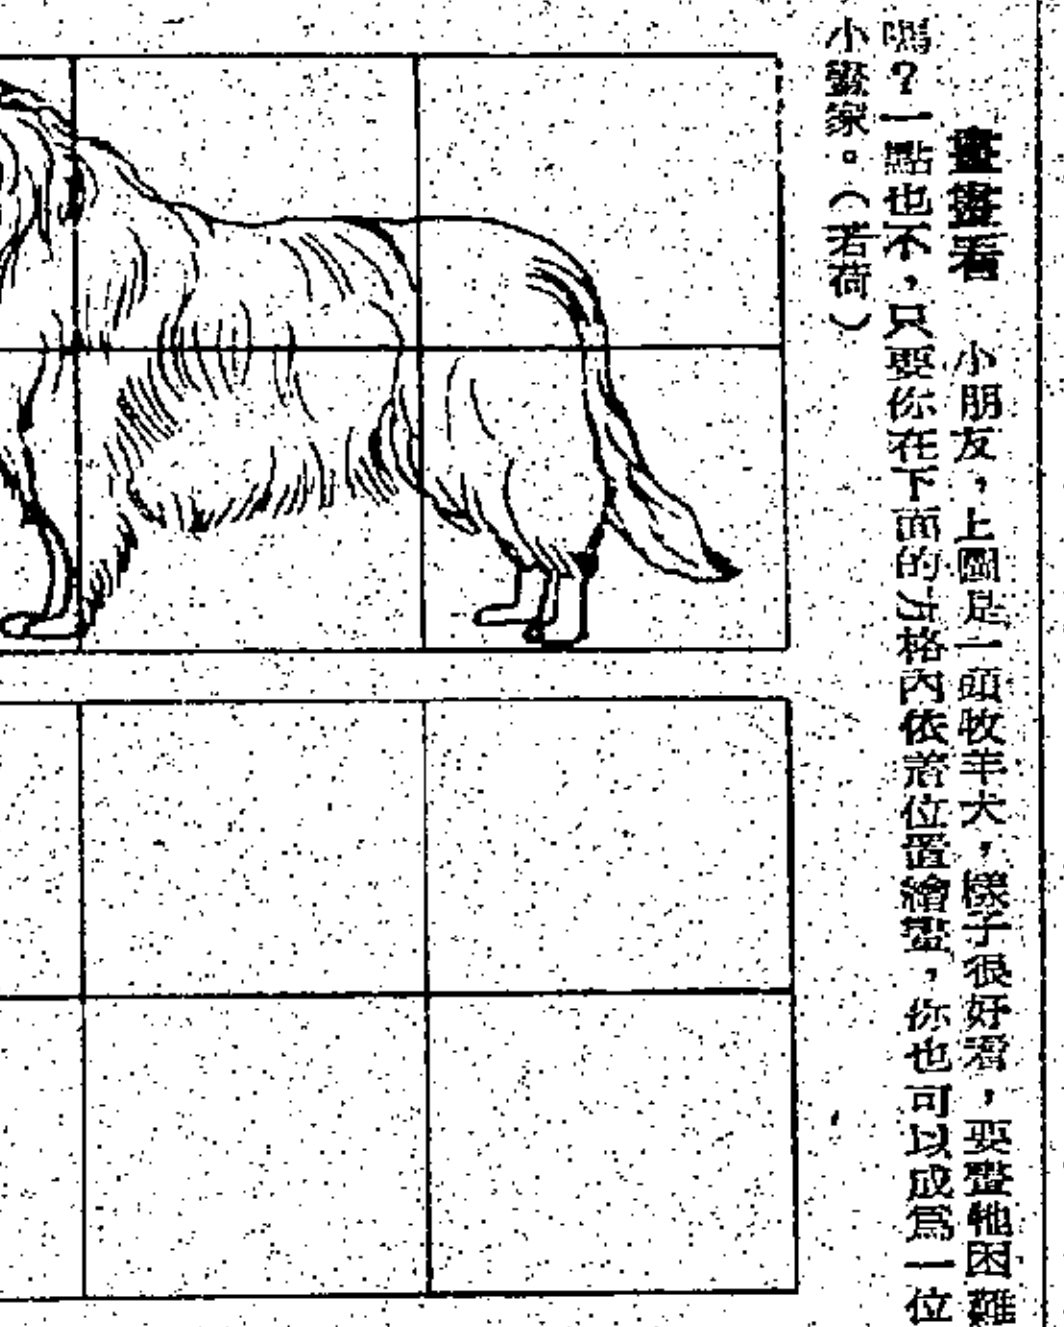 畫畫看　小朋友，上圖是一頭牧羊犬，樣子很好看，要畫牠困難
嗎？一點也不，只要你在下面的方格內依着位置繪畫，你也可以成爲一位
小畫家。（若荷）